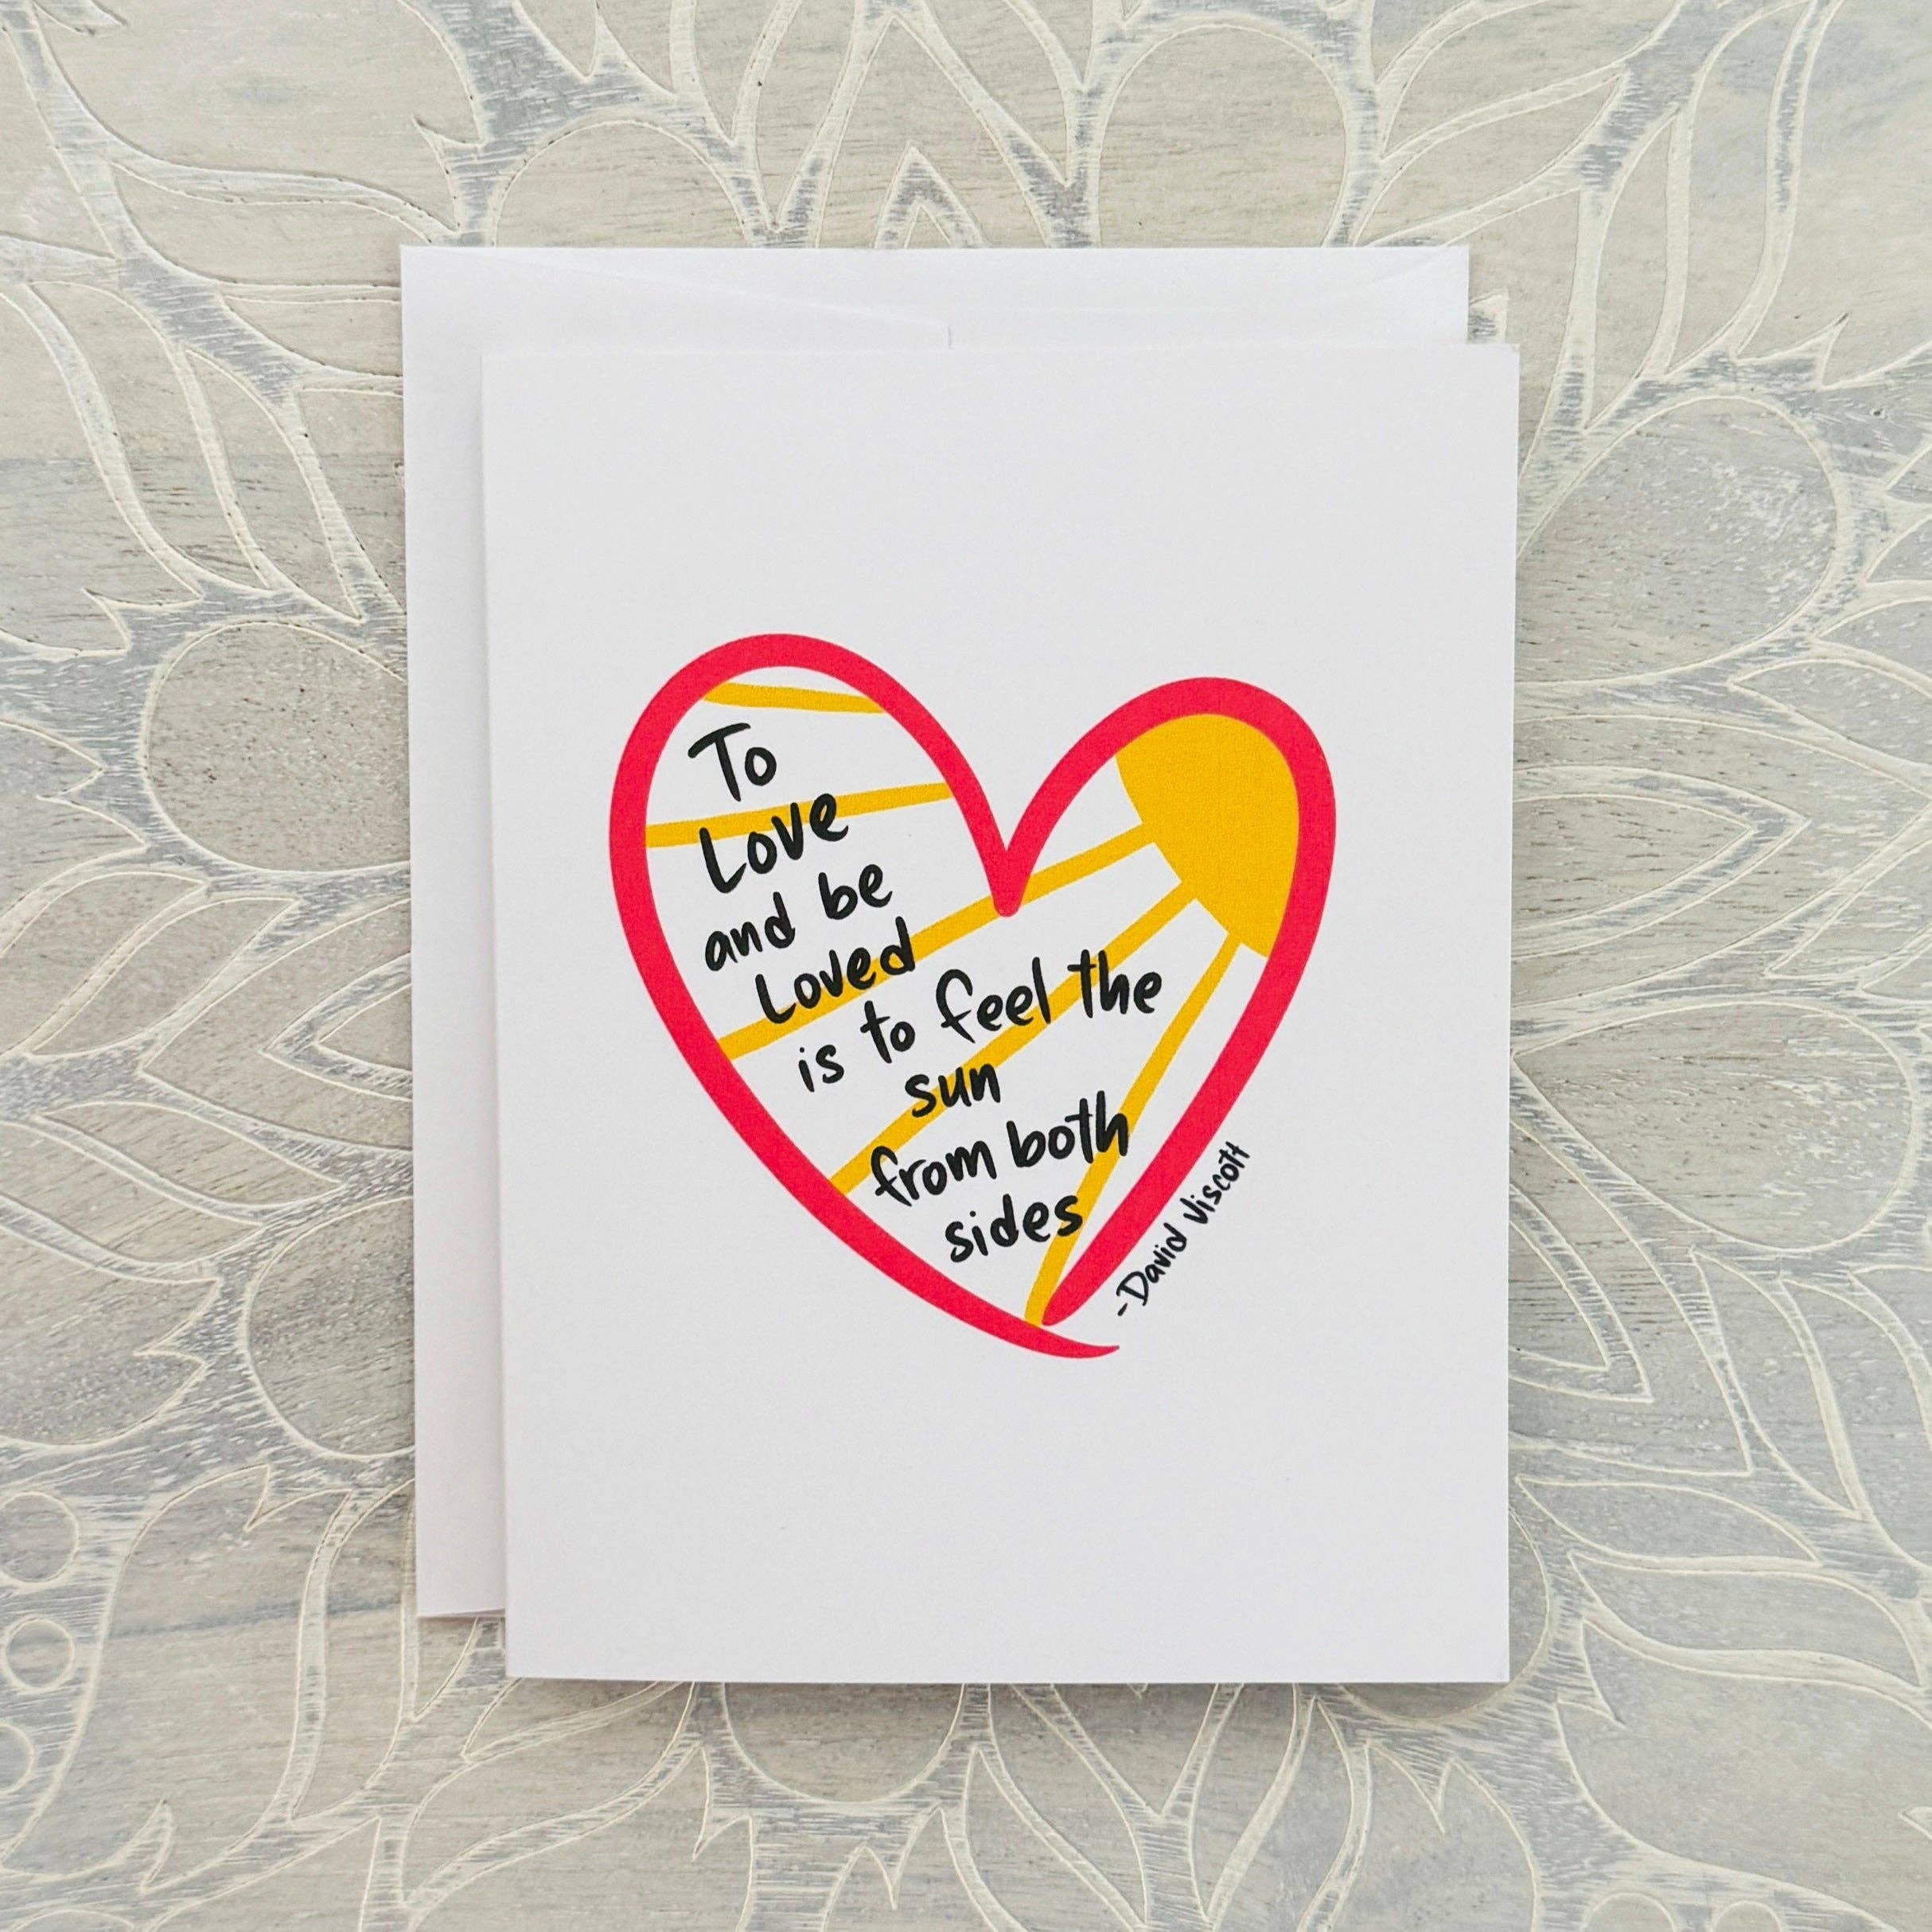 To
Love
and be
Loved
is to feel the
sun
from both
sides
-David Viscott